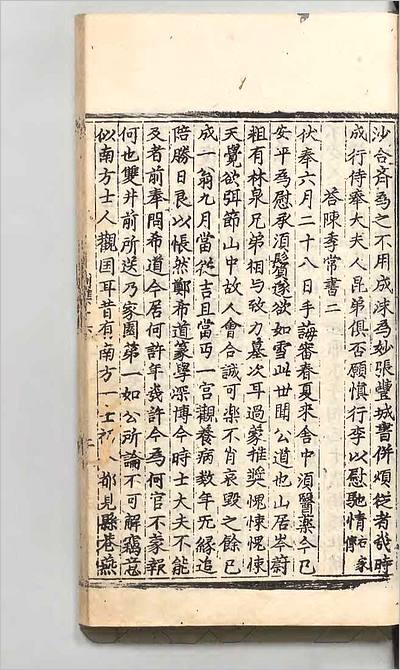 沙合斉為之不用成沫為妙張豐城書併煩從者幾時
成行侍奉大夫人昆弟俱否願慎行李以慰馳情右家傳
答陳季常書二
伏奉六月二十八日手誨審春夏來舍中須醫藥今已
安平為慰承須鬢遂欲如雪此世間公道也山居岑蔚
粗有林泉兄弟相与致力墓次耳過蒙推奬愧悚愧悚
天覺欲弭節山中故人會合誠可樂不肖哀毀之餘已
成一翁九月當從吉且當丐一宮觀養病數年死緣追
陪勝日良以悵然鄭希道篆學深博今時士大夫不能
及者前奉問希道今居何許年幾許今為何官不蒙報
何也雙井前所送乃家園第一如公所論不可解竊意
似南方士人觀国耳昔有南方一士 都見縣巷燕